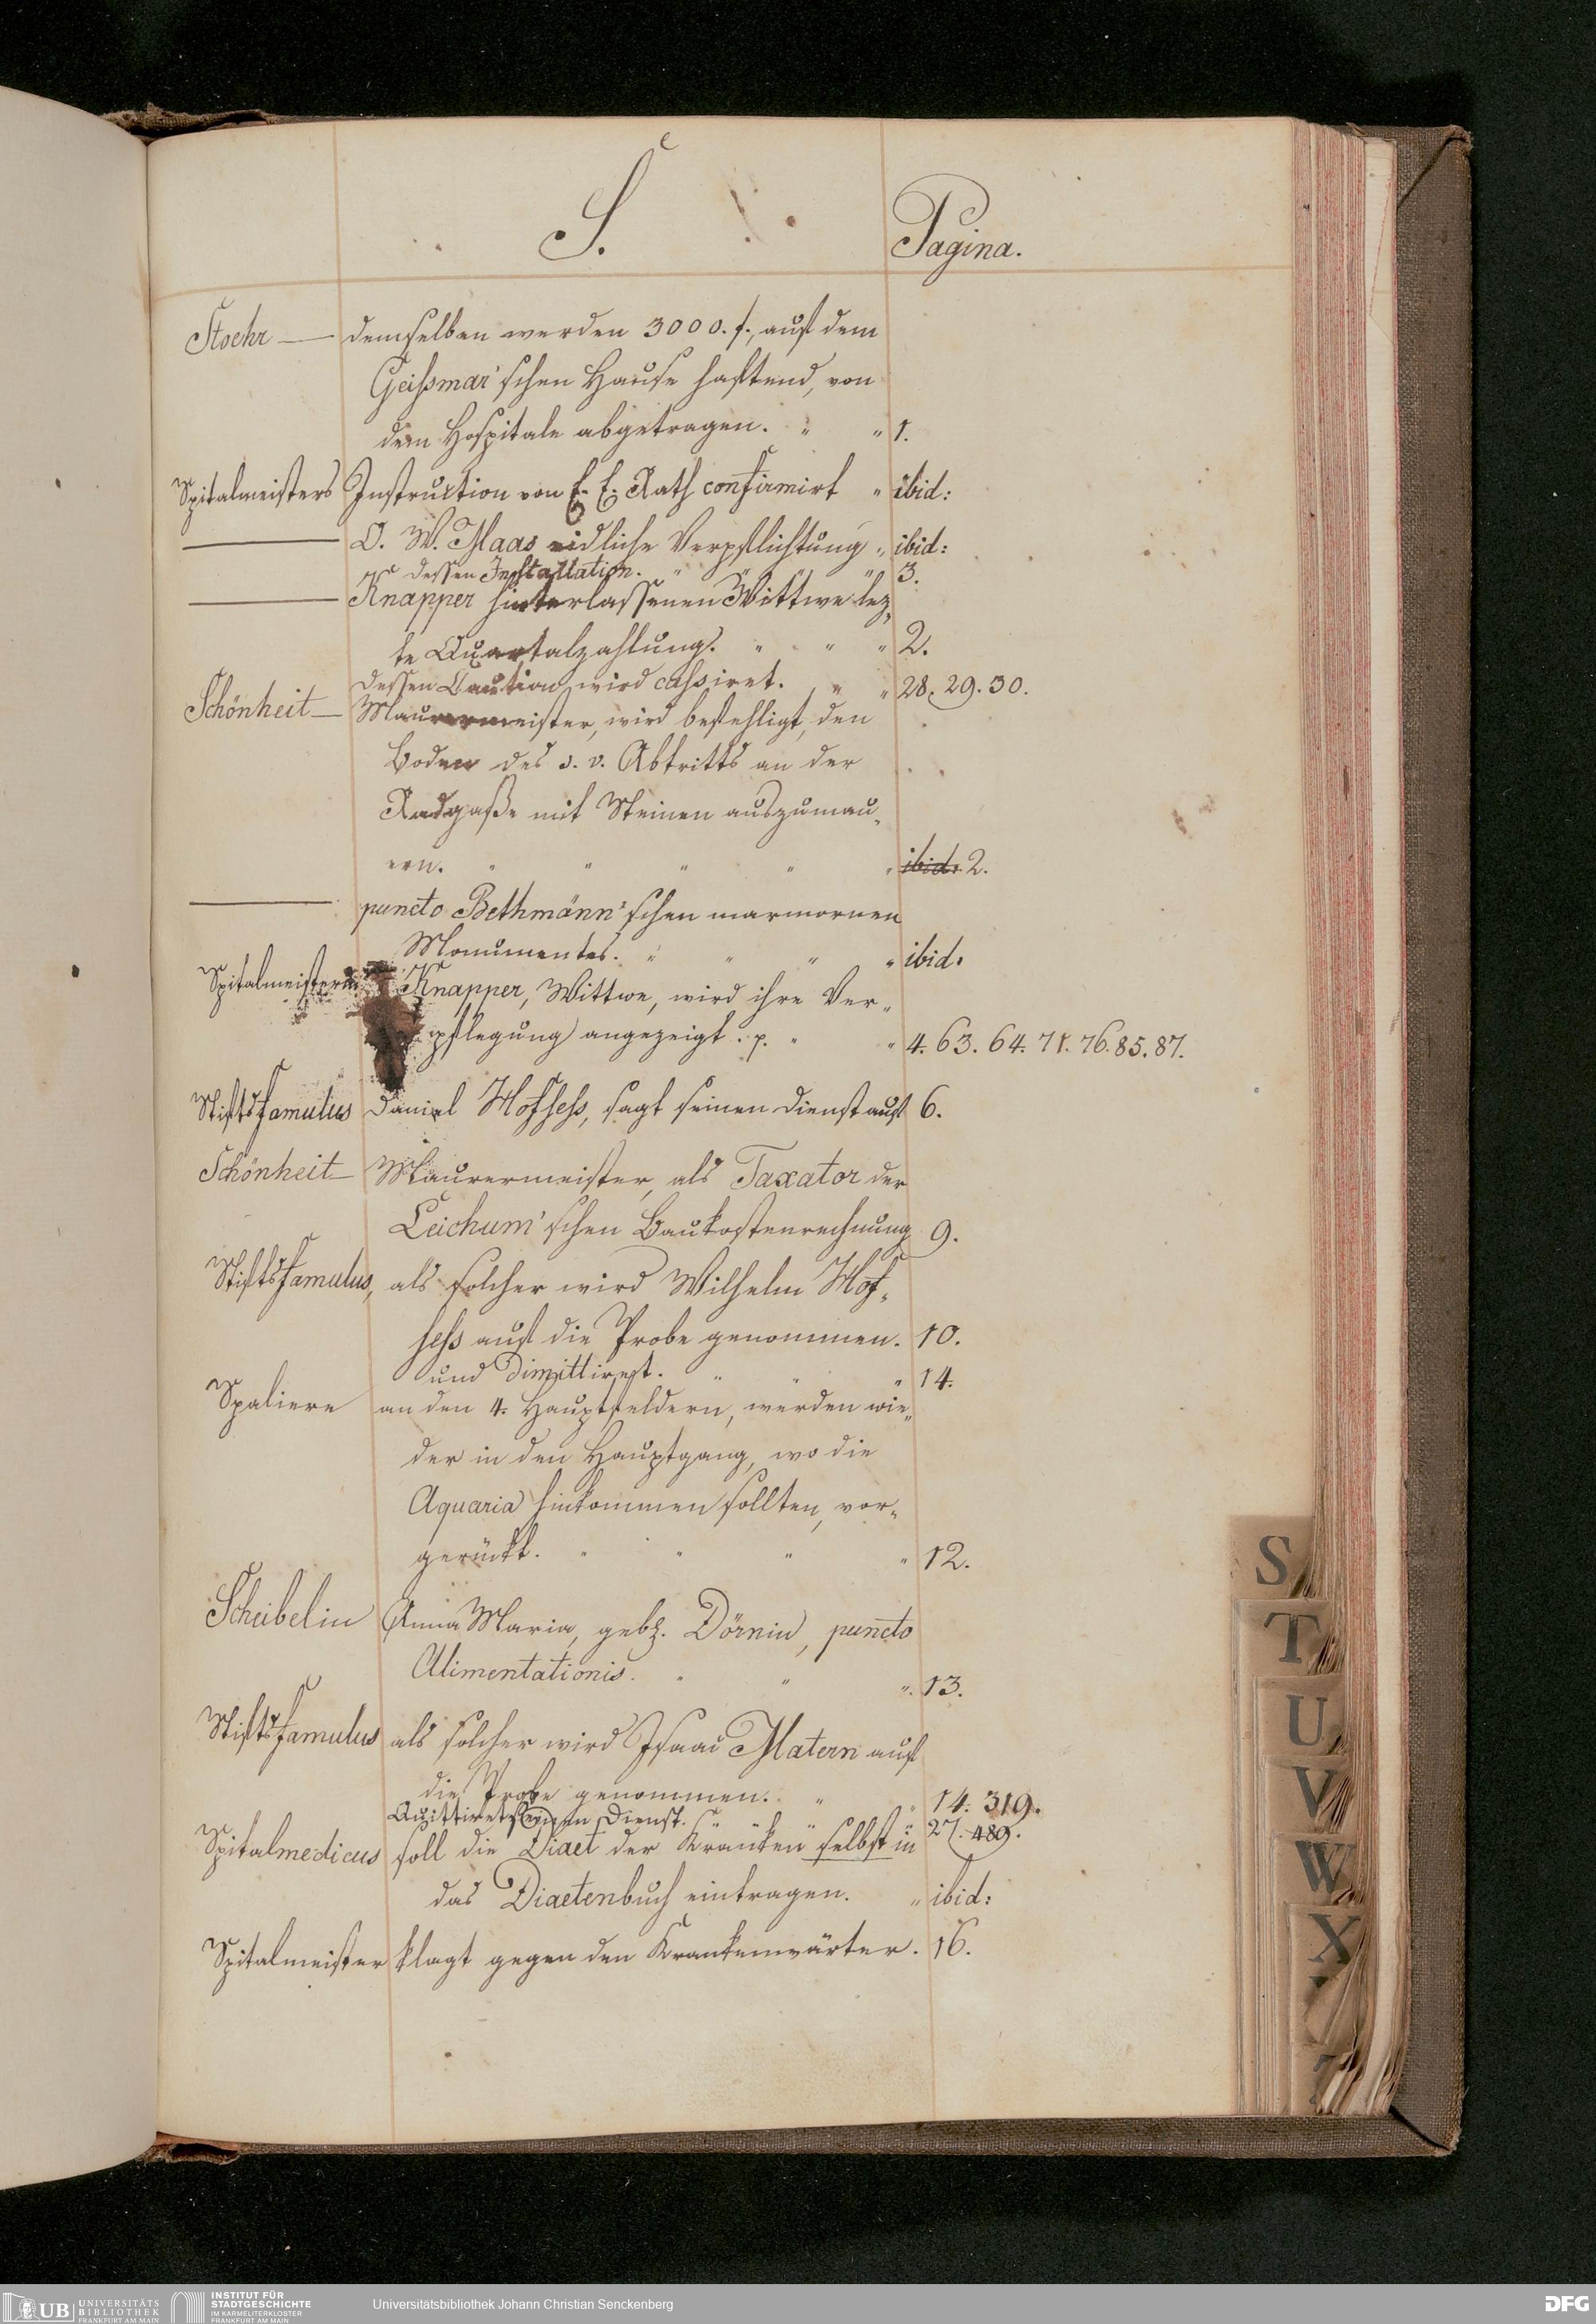 S.
Pagina.
Stoehr — demselben werden 3000. f., auf dem
Geissmar'schen Hause haftend, von
dem Hospitale abgetragen. " " 1.
Spitalmeisters Instruction von E. E. Rath confirmirt " ibid:
— O. W. Maas eidliche Verpflichtung " ibid:
dessen Installation. " " " 3.
— Knapper hinterlassenen Wittwe lez-
te Quartalzahlung. " " " 2.
dessen Caution wird cassiret. " " 28. 29. 30.
Schönheit — Maurermeister, wird befehligt, den
Boden des s. v. Abtritts an der
Radgasse mit Steinen auszumau-
ern. " " " " " ibid. 2.
— puncto Bethmänn'schen marmornen
Monumentes. " " " " ibid.
Spitalmeisterin Knapper, Wittwe, wird ihre Ver-
pflegung angezeigt. p. " " 4. 63. 64. 71. 76. 85. 87.
Stiftsfamulus Daniel Hofsess, sagt seinen Dienst auf 6.
Schönheit — Maurermeister, als Taxator der
Leichum'schen Baukostenrechnung 9.
Stiftsfamulus, als solcher wird Wilhelm Hof-
sess auf die Probe genommen. 10.
und dimittiret. " " " 14.
Spaliere an den 4. Hauptfeldern, werden wie-
der in den Hauptgang, wo die
Aquaria hinkommen sollten, vor-
gerückt. " " " " 12.
Scheibelin Anna Maria, geb. Dörnin, puncto
Alimentationis. " " " 13.
Stiftsfamulus als solcher wird Isaac Matern auf
die Probe genommen. " " 14. 319.
Quittiret seinen Dienst. " " " 27. 489.
Spitalmedicus soll die Diaet der Kranken selbst in
das Diaetenbuch eintragen. " ibid:
Spitalmeister klagt gegen den Krankenwärter. 16.
S
T
U
V
W
X
UB UNIVERSITÄTS
BIBLIOTHEK
FRANKFURT AM MAIN
INSTITUT FÜR
STADTGESCHICHTE
IM KARMELITERKLOSTER
FRANKFURT AM MAIN
Universitätsbibliothek Johann Christian Senckenberg
DFG